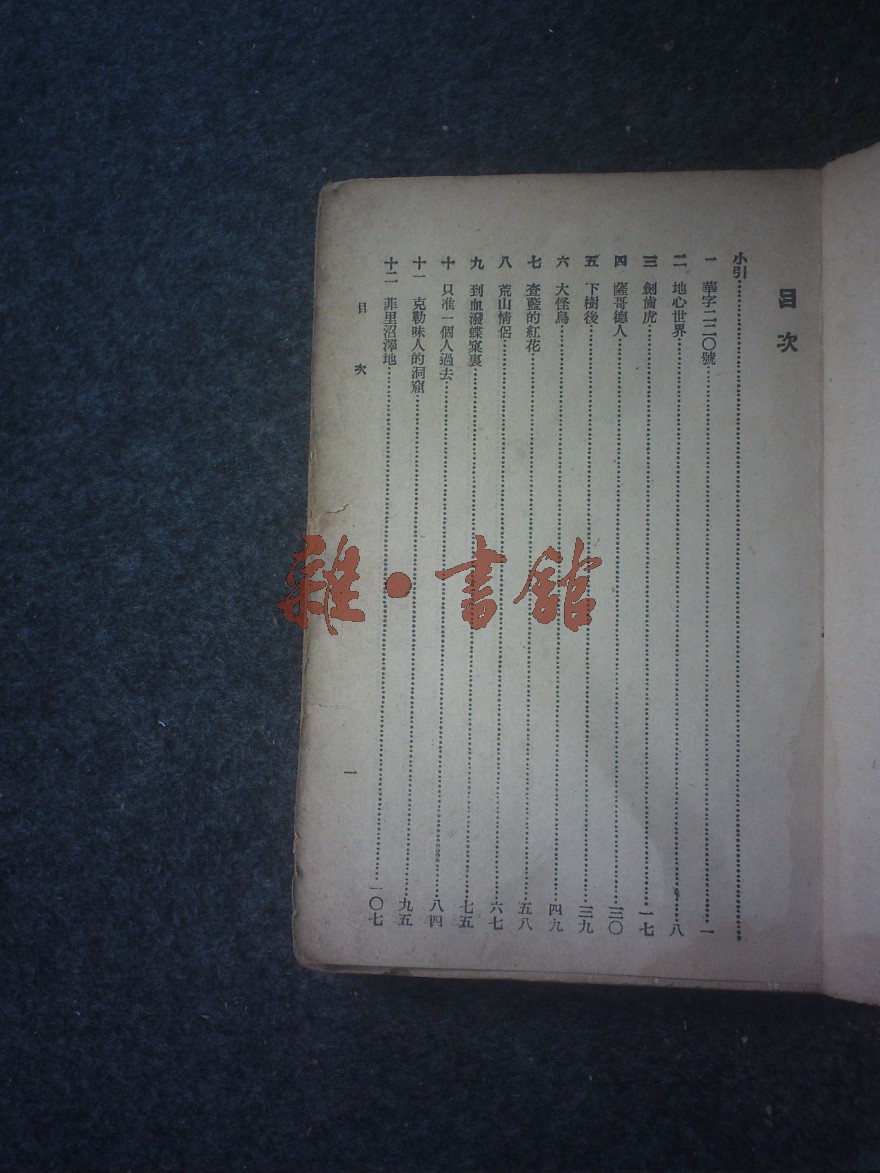 目次
小引
一 華字二二〇號 一
二 地心世界 八
三 劍齒虎 一七
四 薩哥德人 三〇
五 下樹後 三九
六 大怪鳥 四九
七 查藍的紅花 五八
八 荒山情侶 六七
九 到血潑蝶寨裏 七五
十 只准一個人過去 八四
十一 克勒味人的洞窟 九五
十二 菲里沼澤地 一〇七
目次 一
雜·書館